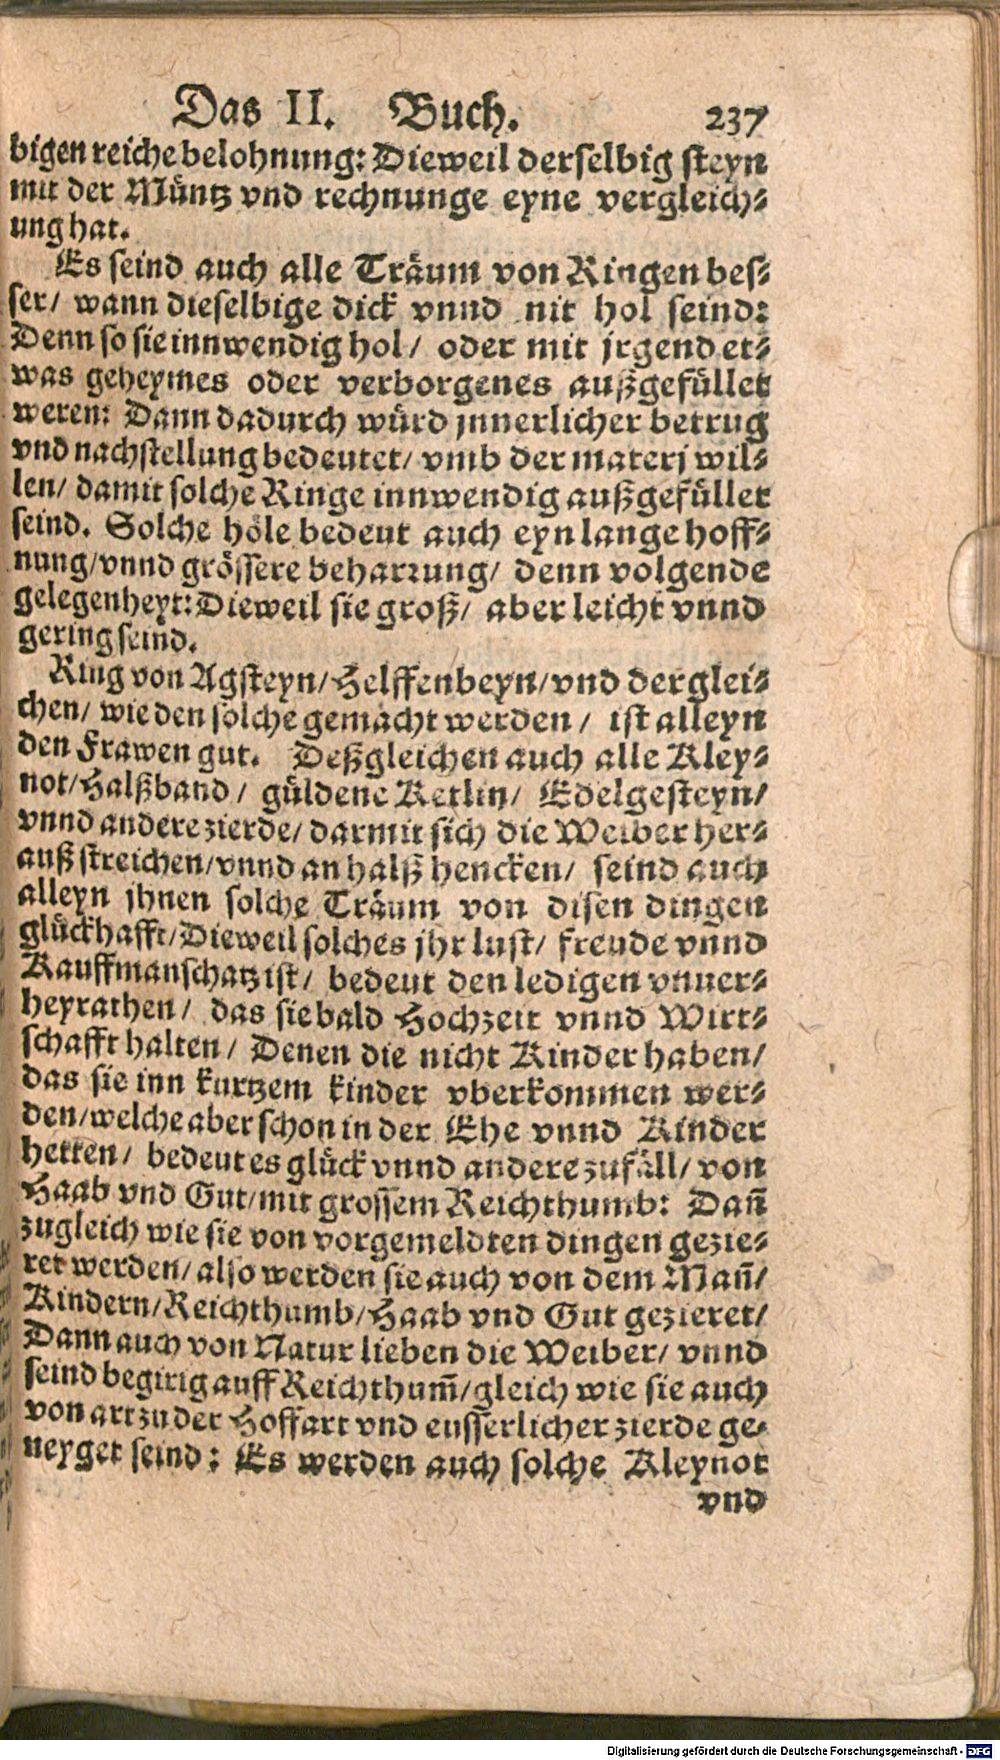 Das II. Buch. 237
bigen reiche belohnung: Dieweil derselbig steyn
mit der Müntz vnd rechnunge eyne vergleich⸗
ung hat.
Es seind auch alle Träum von Ringen bes⸗
ser/ wann dieselbige dick vnnd nit hol seind:
Denn so sie innwendig hol/ oder mit jrgend et⸗
was geheymes oder verborgenes außgefüllet
weren: Dann dadurch würd jnnerlicher betrug
vnd nachstellung bedeutet/ vmb der materj wil⸗
len/ damit solche Ringe innwendig außgefüllet
seind. Solche höle bedeut auch eyn lange hoff⸗
nung/ vnnd grössere beharrung/ denn volgende
gelegenheyt: Dieweil sie groß/ aber leicht vnnd
gering seind.
Ring von Agsteyn/ Helffenbeyn/ vnd derglei⸗
chen/ wie den solche gemacht werden/ ist alleyn
den Frawen gut. Deßgleichen auch alle Kley⸗
not/ Halßband/ güldene Ketlin/ Edelgesteyn/
vnnd andere zierde/ darmit sich die Weiber her⸗
auß streichen/ vnnd an halß hencken/ seind auch
alleyn jhnen solche Träum von disen dingen
glückhafft/ Dieweil solches jhr lust/ freude vnnd
Kauffmanschatz ist/ bedeut den ledigen vnuer⸗
heyrathen/ das sie bald Hochzeit vnnd Wirt⸗
schafft halten/ Denen die nicht Kinder haben/
das sie inn kurtzem kinder vberkommen wer⸗
den/ welche aber schon in der Ehe vnnd Kinder
hetten/ bedeut es glück vnnd andere zufäll/ von
Haab vnd Gut/ mit grossem Reichthumb: Dañ
zugleich wie sie von vorgemeldten dingen gezie⸗
ret werden/ also werden sie auch von dem Mañ/
Kindern/ Reichthumb/ Haab vnd Gut gezieret/
Dann auch von Natur lieben die Weiber/ vnnd
seind begirig auff Reichthum̃/ gleich wie sie auch
von art zu der Hoffart vnd eusserlicher zierde ge⸗
neyget seind: Es werden auch solche Kleynot
vnd
Digitalisierung gefördert durch die Deutsche Forschungsgemeinschaft - DFG